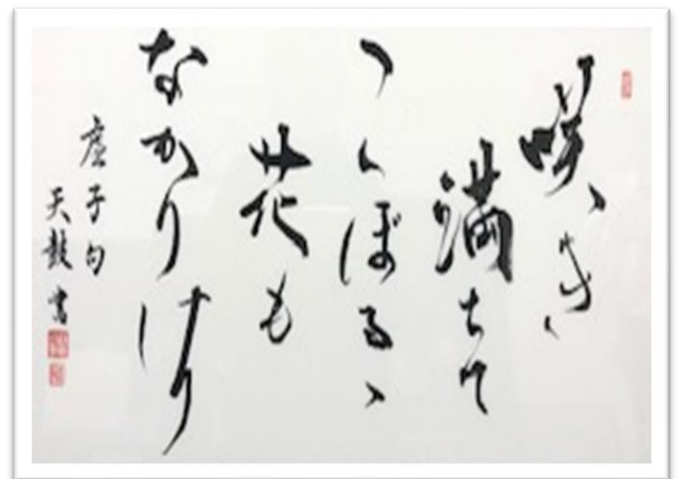 咲き
満ちて
こぼるゝ
花も
なかりけり
虚子句
天鼓書